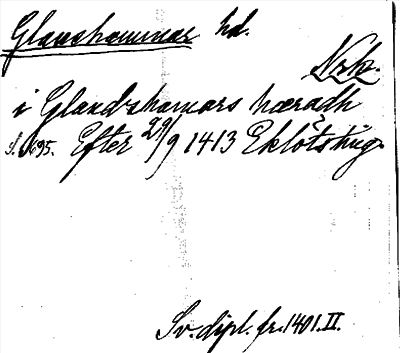 Glanshammar hd.
Nrk.
i Glandzhamars hæradh
s. 695. Efter 29/9 1413 Eklötshug
Sv. dipl. fr. 1401. II.